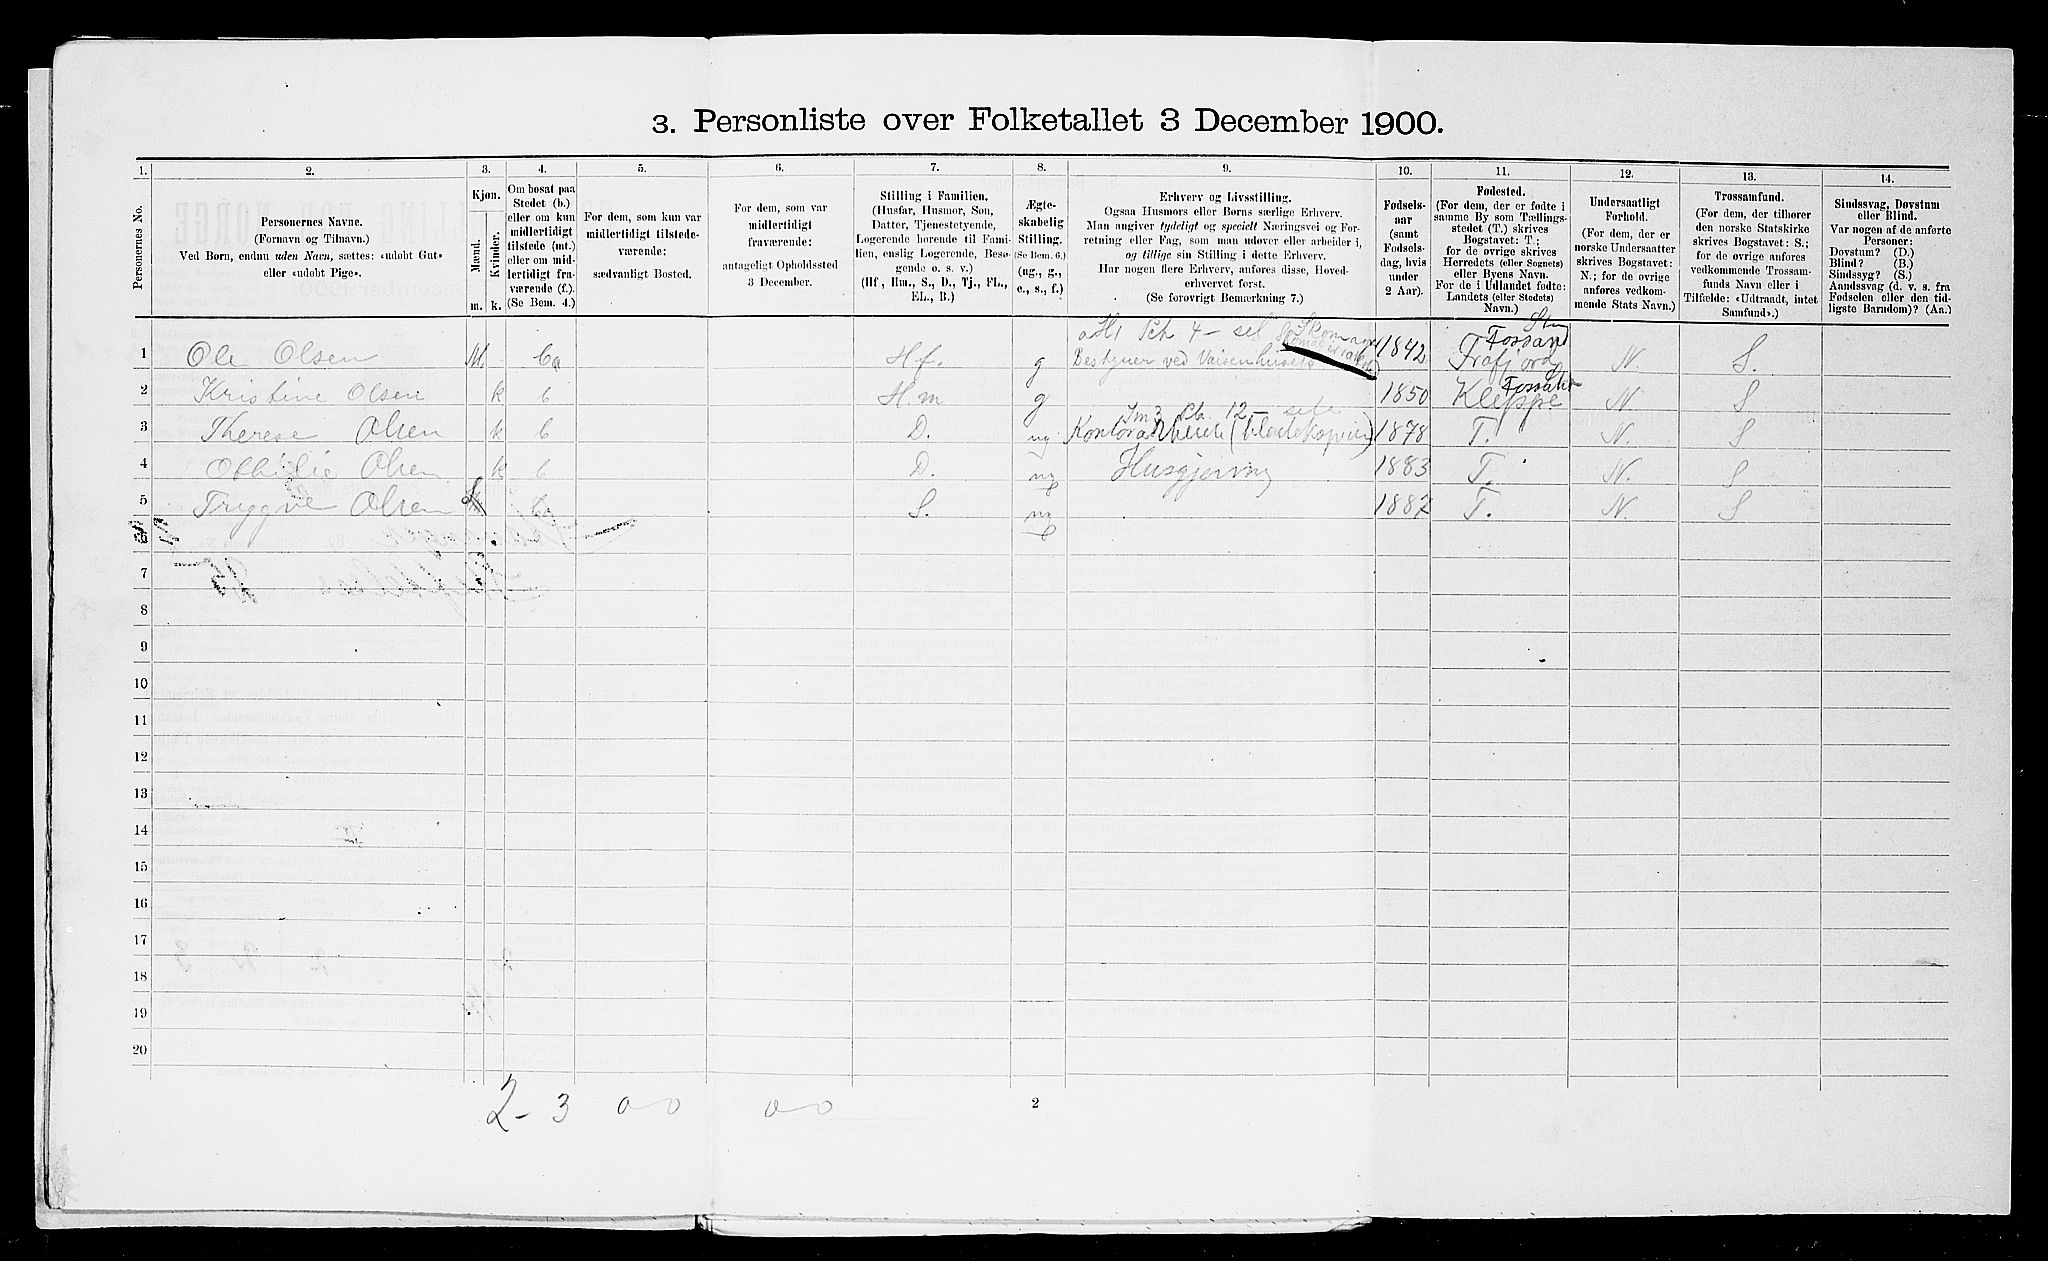 3. Personliste over Folketallet 3 December 1900.
1. 2. 3. 4. 5. 6. 7. 8. 9. 10. 11. 12. 13. 14.
Personernes No.
Personernes Navne.
(Fornavn og Tilnavn.)
Ved Børn, endnu uden Navn, sættes: «udøbt Gut»
eller «udøbt Pige».
Kjøn.
Mænd.
Kvinder.
m. k.
Om bosat paa
Stedet (b.)
eller om kun
midlertidigt
tilstede (mt.)
eller om mid-
lertidigt fra-
værende (f.).
(Se Bem. 4.)
For dem, som kun var
midlertidigt tilstede-
værende:
sædvanligt Bosted.
For dem, som var
midlertidigt
fraværende:
antageligt Opholdssted
3 December.
Stilling i Familien.
(Husfar, Husmor, Søn,
Datter, Tjenestetyende,
Logerende hørende til Fami-
lien, enslig Logerende, Besø-
gende o. s. v.)
(Hf, Hm., S., D., Tj., FL.,
EL., B.)
Ægte-
skabelig
Stilling.
(Se Bem. 6.)
(ug., g.,
e., s., f.)
Erhverv og Livsstilling.
Ogsaa Husmors eller Børns særlige Erhverv.
Man angiver tydeligt og specielt Næringsvei og For-
retning eller Fag, som man udøver eller arbeider i,
og tillige sin Stilling i dette Erhverv.
Har nogen flere Erhverv, anføres disse, Hoved-
erhvervet først.
(Se forøvrigt Bemærkning 7.)
Fødsels-
aar
(samt
Fødsels-
dag, hvis
under
2 Aar).
Fødested.
(For dem, der er fødte i
samme By som Tællings-
stedet (T.) skrives
Bogstavet: T.;
for de øvrige skrives
Herredets (eller Sognets)
eller Byens Navn.
For de i Udlandet fødte:
Landets (eller Stedets)
Navn.)
Undersaatligt
Forhold.
(For dem, der er
norske Undersaatter
skrives Bogstavet:
N.; for de øvrige
anføres vedkom-
mende Stats Navn.)
Trossamfund.
(For dem, der tilhører
den norske Statskirke
skrives Bogstavet: S.;
for de øvrige anføres
vedkommende Trossam-
funds Navn eller i
Tilfælde: «Udtraadt, intet
Samfund».)
Sindssvag, Døvstum
eller Blind.
Var nogen af de anførte
Personer:
Døvstum? (D.)
Blind? (B.)
Sindssyg? (S.)
Aandssvag (d. v. s. fra
Fødselen eller den tid-
ligste Barndom)? (Aa.)
1 Ole Olsen M. b Hf. g Bestyrer ved Vaisenhusets 1842 Fossand Frafjord N. S.
2 Kristine Olsen k b H.m g 1850 Kleppe N S
3 Therese Olsen k b D. ug 1878 T. N. S
4 Othilie Olsen k b D. ug Husgjerning 1883 T. N. S
5 Trygve Olsen b S. ug 1887 T. N. S
6
7
8
9
10
11
12
13
14
15
16
17
18
19
20
2 - 3 0 0 0 0
2